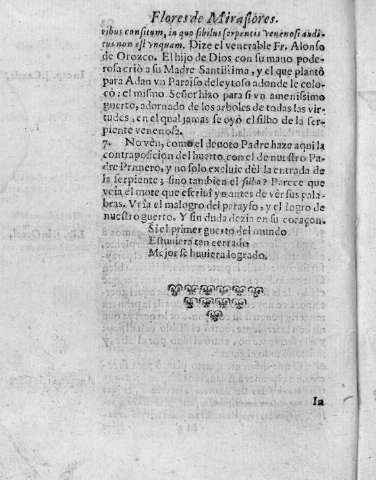 Flores de Miraflores.
vibus consitum, in quo sibilus serpentis venenosi audi-
tus non est vnquam. Dize el venerable Fr. Alonso
de Orozco. El hijo de Dios con su mano pode-
rosa criò a su Madre Santissima, y el que plantò
para Adan vn Paraiso deleytoso adonde le colo-
cò: el mismo Señor hizo para si vn amenissimo
guerto, adornado de los arboles de todas las vir-
tudes, en el qual jamas se oyó el silbo de la ser-
piente venenosa.
7. No vèn, como el deuoto Padre haze aqui la
contraposicion del huerto con el de nuestro Pa-
dre Primero, y no solo excluie dèl la entrada de
la serpiente; sino tambien el silba? Parece que
veia el mote que escriui y e antes de ver sus pala-
bras. Veia el malogro del parayso, y el logro de
nuestro guerto. Y sin duda dezia en su coraçon.
Si el primer guerto del mundo
Estuuiera tan cerrado
Mejor se huuiera logrado.
Ia